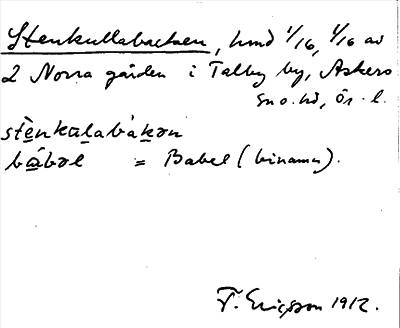 Stenkullabacken, hmd 1/16, 1/16 av
2 Norra gården i Talby by, Askers
sn o. hd, Ör. l.
stènkulabákən
bábəl = Babel (binamn).
T. Ericsson 1912.